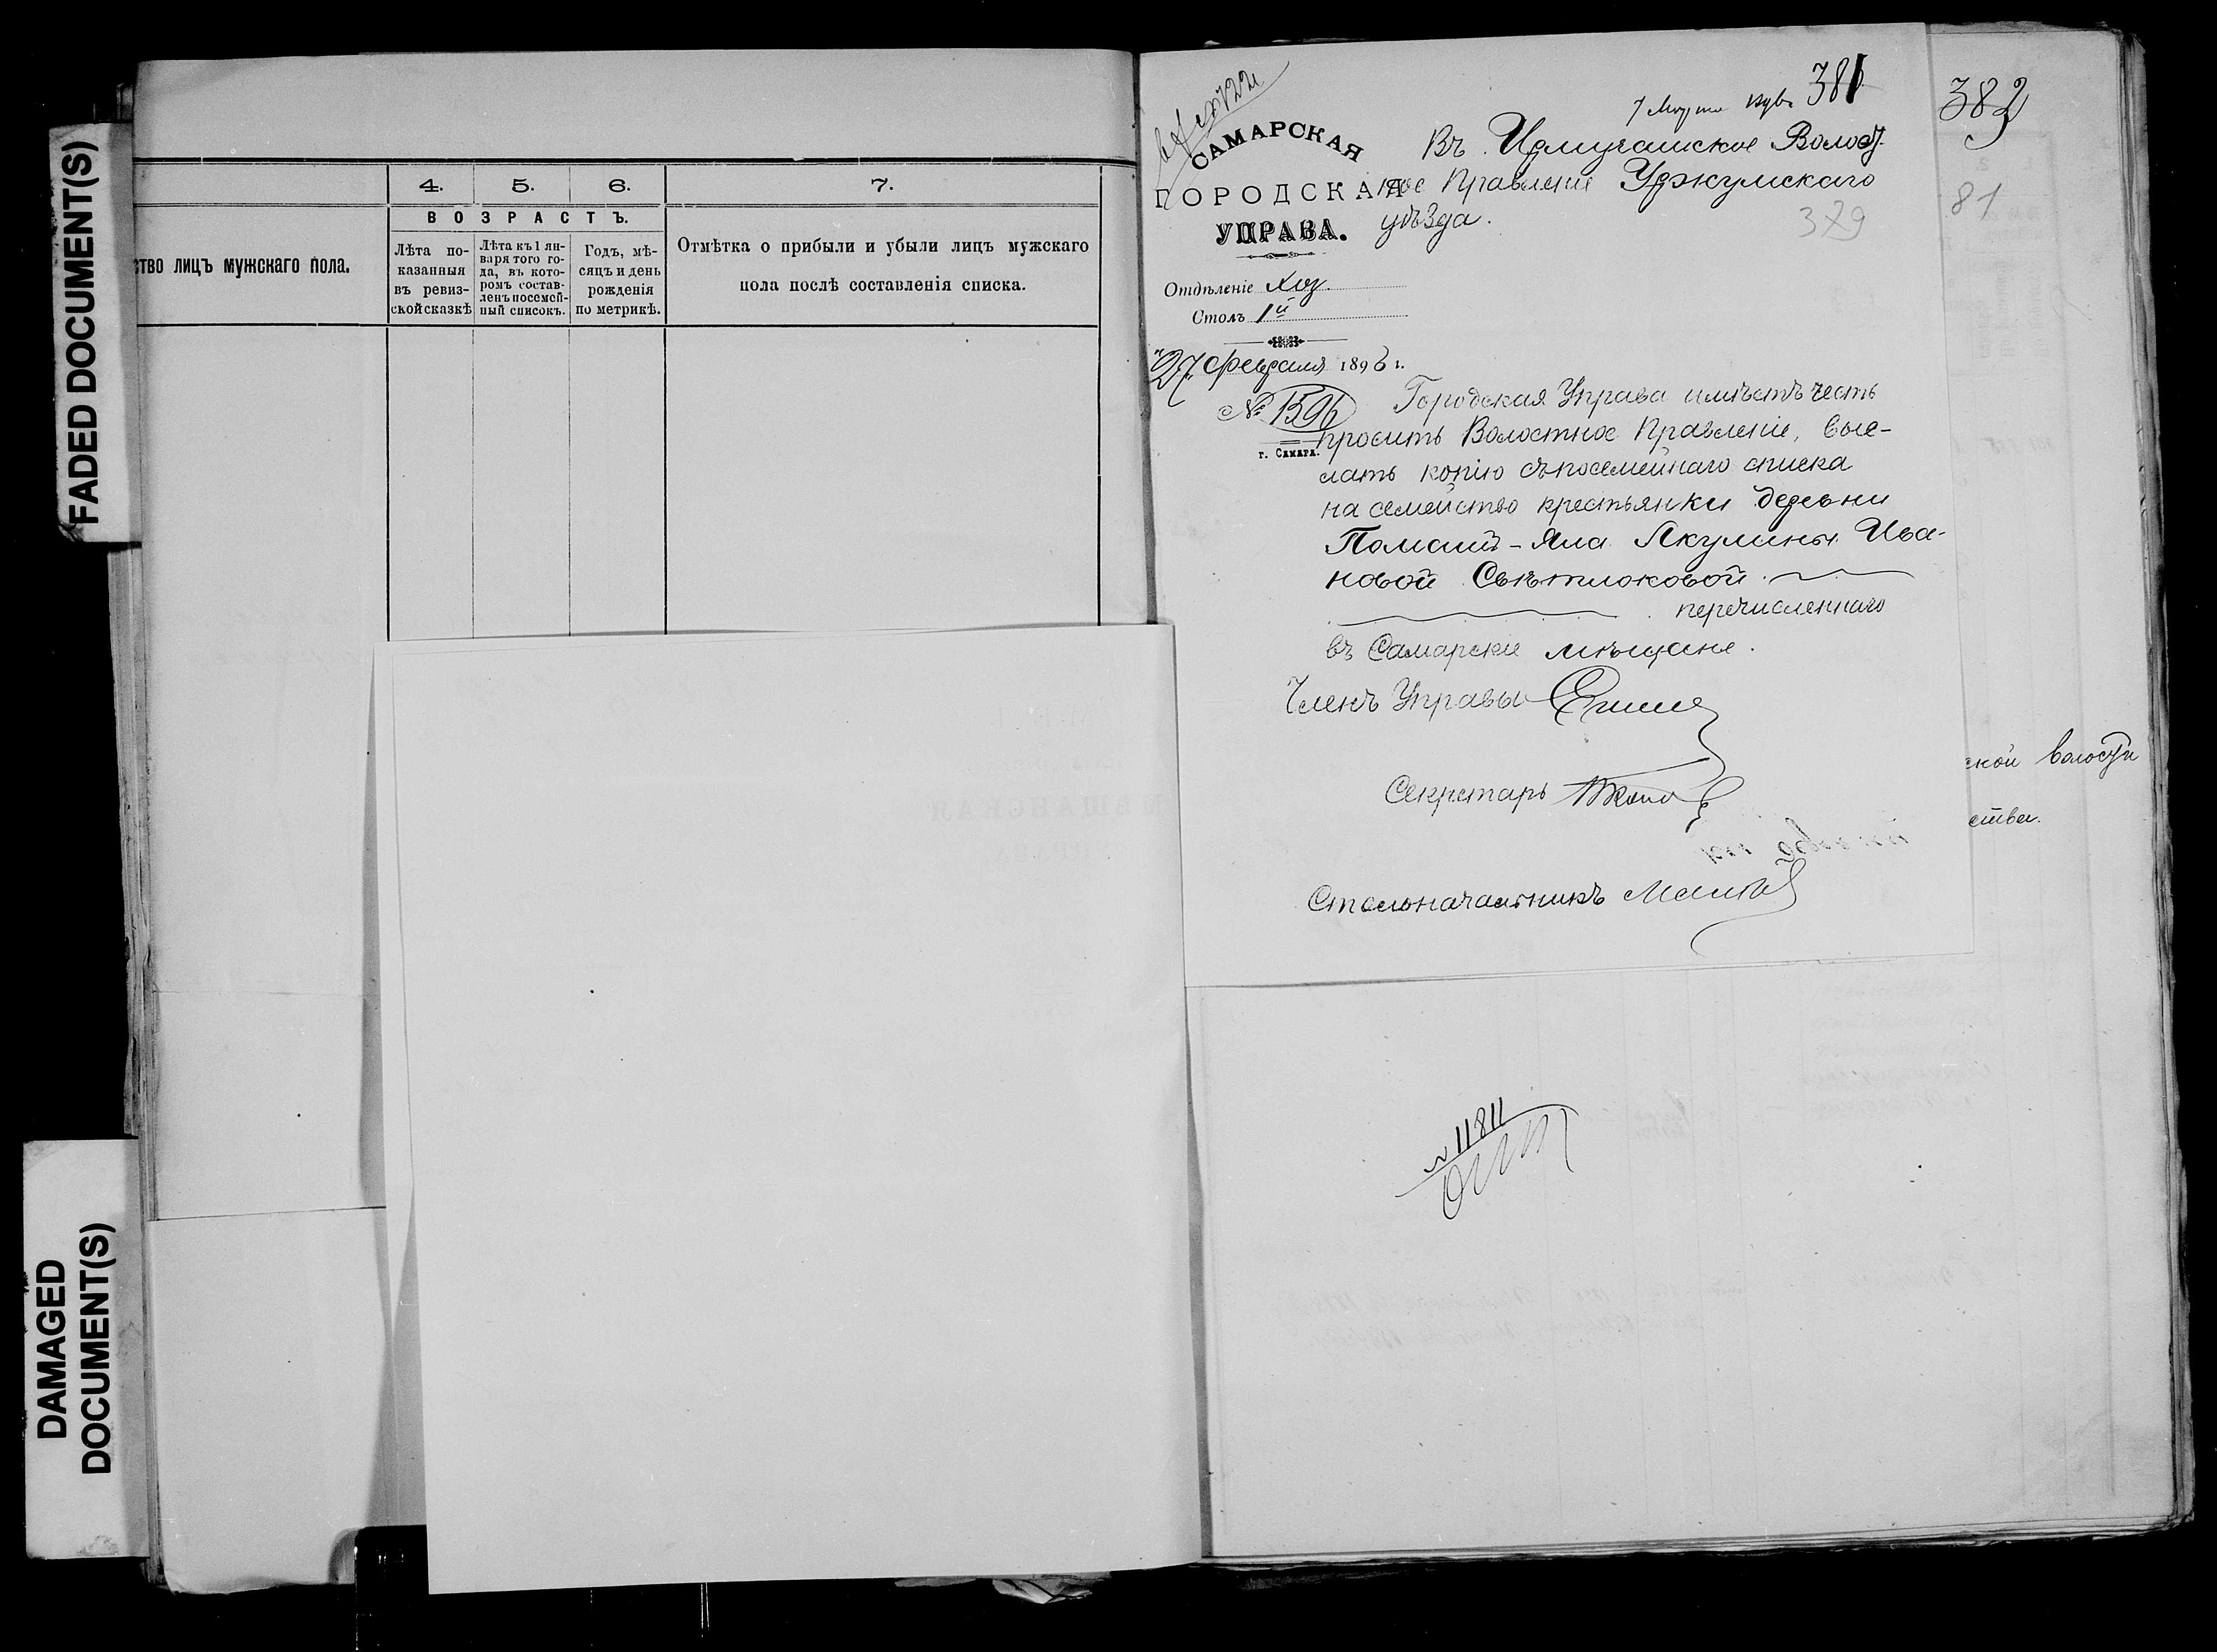 FADED DOCUMENT(S)
DAMAGED
DOCUMENT(S)
4.
5.
6.
7.
ВОЗРАСТЪ.
тво лицъ мужскаго пола.
Лѣта по-
казанныя
въ ревиз-
ской сказкѣ
Лѣта къ 1 ян-
варя того го-
да, въ кото-
ромъ состав-
ленъ посемей-
ный списокъ.
Годъ, мѣ-
сяцъ и день
рожденія
по метрикѣ.
Отмѣтка о прибыли и убыли лицъ мужскаго
пола послѣ составленія списка.
7 Марта 381
382
81
379
САМАРСКАЯ
ГОРОДСКАЯ
УПРАВА.
Отдѣленіе Хоз.
Столъ 1й
"27" Февраля 1896 г.
№ 1596
г. Самара.
Въ Волост-
ное Правленіе Уржумскаго
уѣзда.
Городская Управа имѣетъ честь
просить Волостное Правленіе, выс-
лать копію съ посемейнаго списка
на семейство крестьянки деревни
Помашъ-Яла Акулины Ива-
новой Свѣтлоковой
перечисленнаго
въ Самарскіе мѣщане.
Членъ Управы
Секретарь
Столоначальникъ
ской волости
ства.
№ 11811